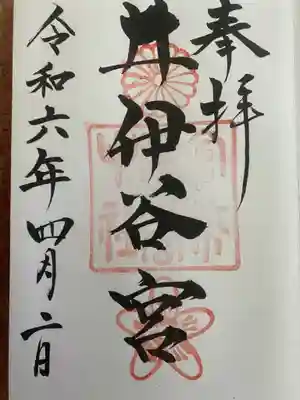 奉拝
井伊谷宮
令和六年四月二日